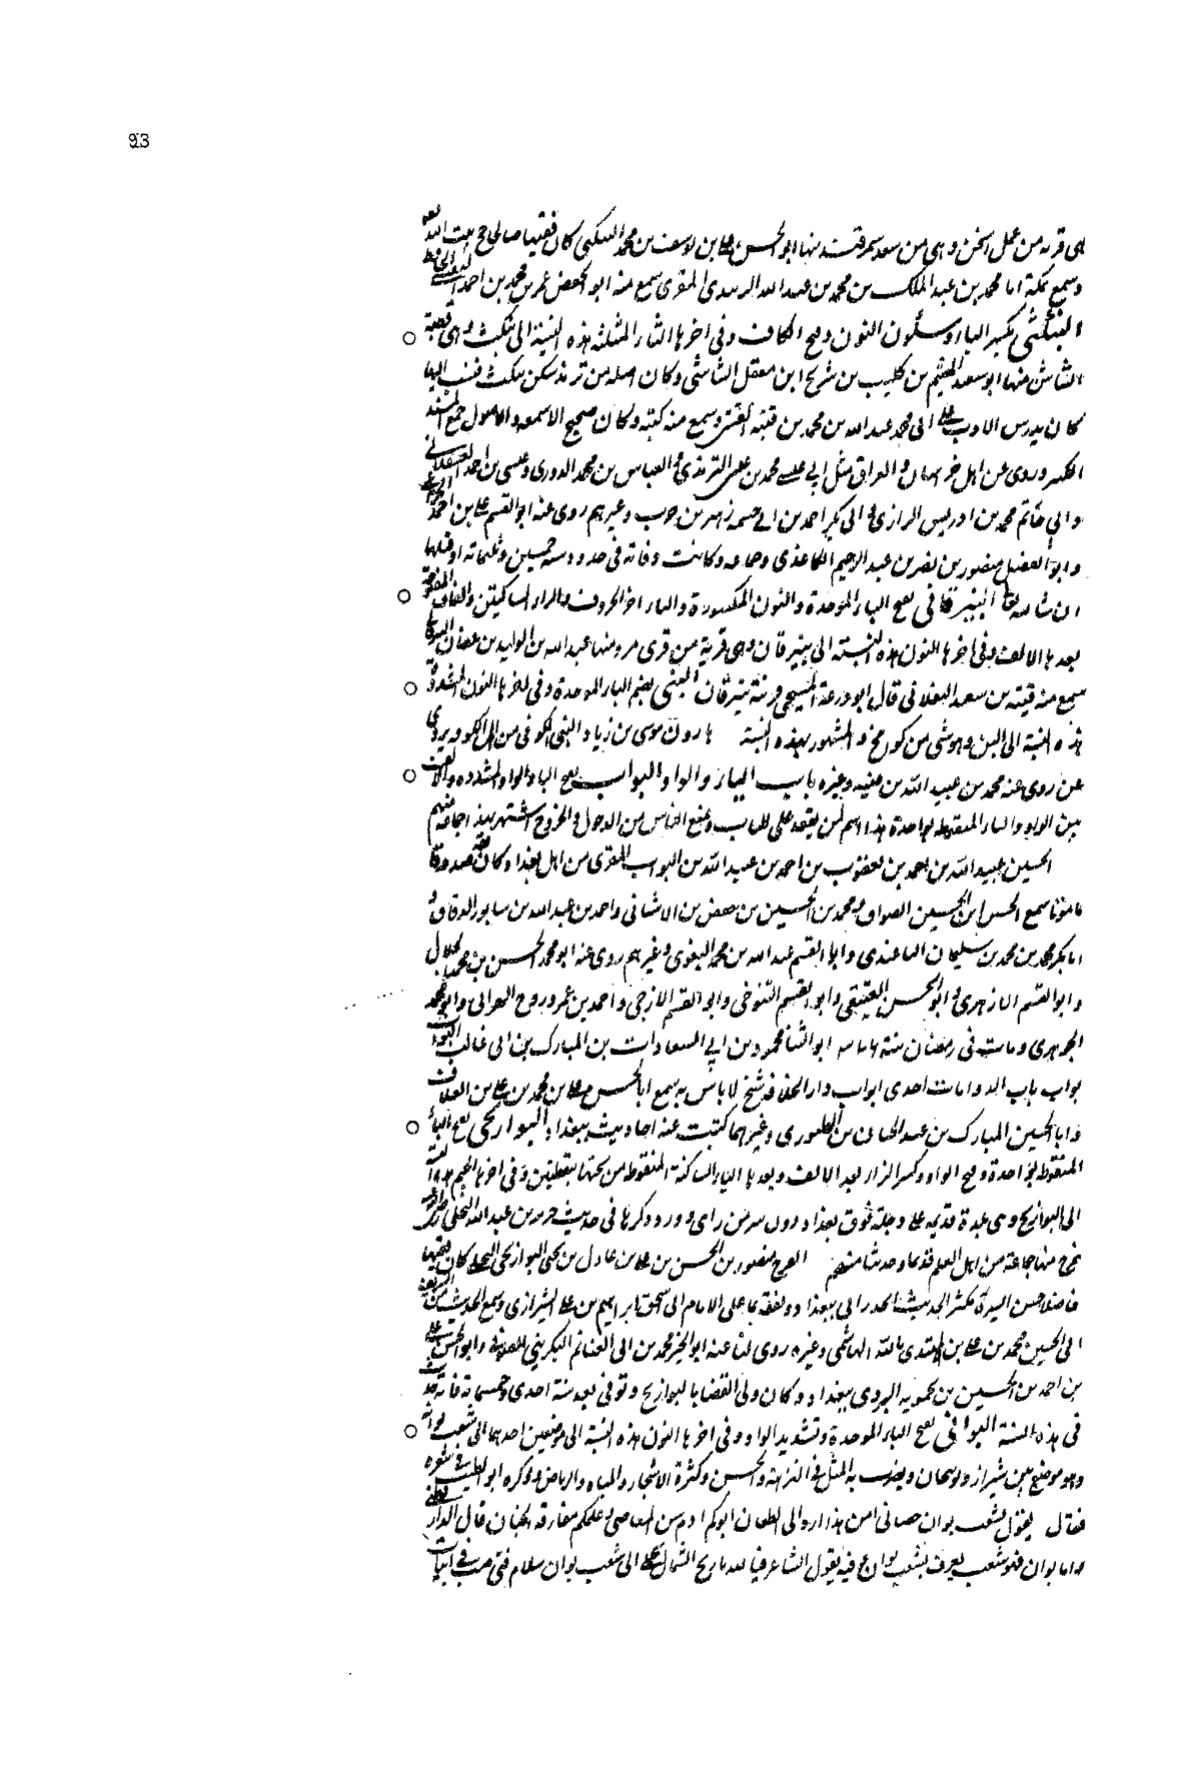 93
هى قرية من عمل اسخن وهى من سغد سمرقند منها ابو الحسن على بن يوسف بن محمد البنكى كان فقيها صالحا حج بيت الله
وسمع بمكة ابا محمد بن عبد الملك بن محمد بن عبد الله الزبيدى المقرى سمع منه ابو الحفص عمر بن محمد بن احمد النسفى الحافظ
البنكثى بكسر الباء وسكون النون وفتح الكاف وفى اخرها الثاء المثلثة هذه النسبة الى بنكث وهى قصبة
الشاش منها ابو سعد الهيثم بن كليب بن شريح ابن معقل الشاشى وكان اصله من ترمذ سكن بنكث فنسب اليها
كان يدرس الادب على ابى محمد عبد الله بن محمد بن قتيبة وسمع منه كتبه وكان صحيح الاصول جمع المسند
الكبير وروى عن اهل خراسان والعراق مثل ابى عيسى محمد بن عيسى الترمذى والعباس بن محمد الدورى وعيسى بن احمد العسقلانى
وابى حاتم محمد بن ادريس الرازى وابى بكر احمد بن ابى خيثمه زهير بن حرب وغيرهم روى عنه ابو القسم على بن احمد الخزاعى
وابو الفضل منصور بن نصر بن عبد الرحيم الكاغذى وجماعه وكانت وفاته فى حدود سنه خمسين وثلثمائة او قبلها
ان شاء الله تعالى البنيرقانى بفتح الباء الموحدة والنون المكسورة والياء اخر الحروف والراء الساكنتين والقاف المفتوحة
بعدها الالف وفى اخرها النون هذه النسبة الى بنيرقان وهى قرية من قرى مرو منها عبد الله بن الوليد بن عفان
سمع منه قتيبه بن سعيد البغلانى قال ابو زرعة السنجى قرية بنيرقان البنى بضم الباء الموحدة وفى اخرها النون المشددة
هذه النسبة الى البن وهو شى من كوامخ والمشهور بهذه النسبة هارون موسى بن زياد البنى الكوفى من اهل الكوفه يروى
عن روى عنه محمد بن عبيد الله بن عتبه وغيره باب الباء والواو البواب بفتح الباء والواو المشدده والالف
بين الواو والباء المنقوطه بواحدة هذا اسم لمن يقعد على الباب ويمنع الناس من الدخول والخروج اشتهر بهذا جماعة منهم
الحسين عبيد الله بن احمد بن يعقوب بن احمد بن عبيد الله بن البواب المقرى من اهل بغداد وكان ثقة صدوقا
مامونا سمع الحسن ابن الحسين الصواف ومحمد بن الحسين بن حفص بن الاشنانى واحمد بن عبد الله بن سابور الدقاق و
ابا بكر محمد بن محمد بن سليمان الباغندى وابا القسم عبد الله بن محمد البغوى وغيرهم روى عنه ابو محمد الحسن بن محمد الخلال
وابو القسم الازهرى وابو الحسن العتيقى وابو القسم التنوخى وابو القسم الازجى واحمد بن عمر وروح النهروانى وابو محمد
الجوهرى ومات فى رمضان سنة ابو الثنا محمود بن ابى السعادات بن المبارك بن ابى غالب البواب
بواب باب الدوامات احدى ابواب دار الخلافة شيخ لا باس به سمع ابا الحسن على بن محمد بن على بن العلاف
وابا الحسين المبارك بن عبد الجبار بن الطيورى وغيرهما كتبت عنه احاديث ببغداد البوازيجى بفتح الباء
المنقوطه بواحدة وفتح الواو وكسر الزاء بعد الالف وبعدها الياء الساكنة المنقوطه من تحتها بنقطتين وفى اخرها الجيم هذه النسبة
الى البوازيج وهى بلدة قديمه على دجلة فوق بغداد دون سر من راى وورد ذكرها فى حديث جرير بن عبد الله البجلى رضى الله عنه
خرج منها جماعة من اهل العلم قديما وحديثا منهم الفرج منصور بن الحسن بن على بن عادل بن يحيى البوازيجى البجلى كان فقيها
فاضلا حسن السيرة مكثر الحديث انحدر الى بغداد وتفقه بها على الامام ابى اسحق ابراهيم بن على الشيرازى وسمع الحديث من الشريف
ابى الحسين محمد بن على بن المهتدى بالله الهاشمى وغيره روى لنا عنه ابو الخير محمد بن ابى الغنائم التكريتى وابو الحسن على
بن احمد بن الحسين بن محمويه اليزدى ببغداد وكان ولى القضاء بالبوازيج وتوفى بعد سنة احدى وخمسمائة
فى هذه السنة البوانى بفتح الباء الموحدة وتشديد الواو وفى اخرها النون هذه النسبة الى موضعين احدهما الى شعب بوان
وهو موضع بين شيراز ونوبنجان ويضرب به المثل فى النزهة والحسن وكثرة الاشجار والمياه والرياض وذكره ابو الطيب فى شعره
فقال يقول بشعب بوان حصانى امن هذا يسار الى الطعان ابوكم ادم سن المعاصى وعلمكم مفارقة الجنان قال
واما بوان فهو شعب يعرف بشعب بوان وفيه يقول الشاعر فبالله يا ريح الشمال على الى شعب بوان سلام فتى صب فى ابيات